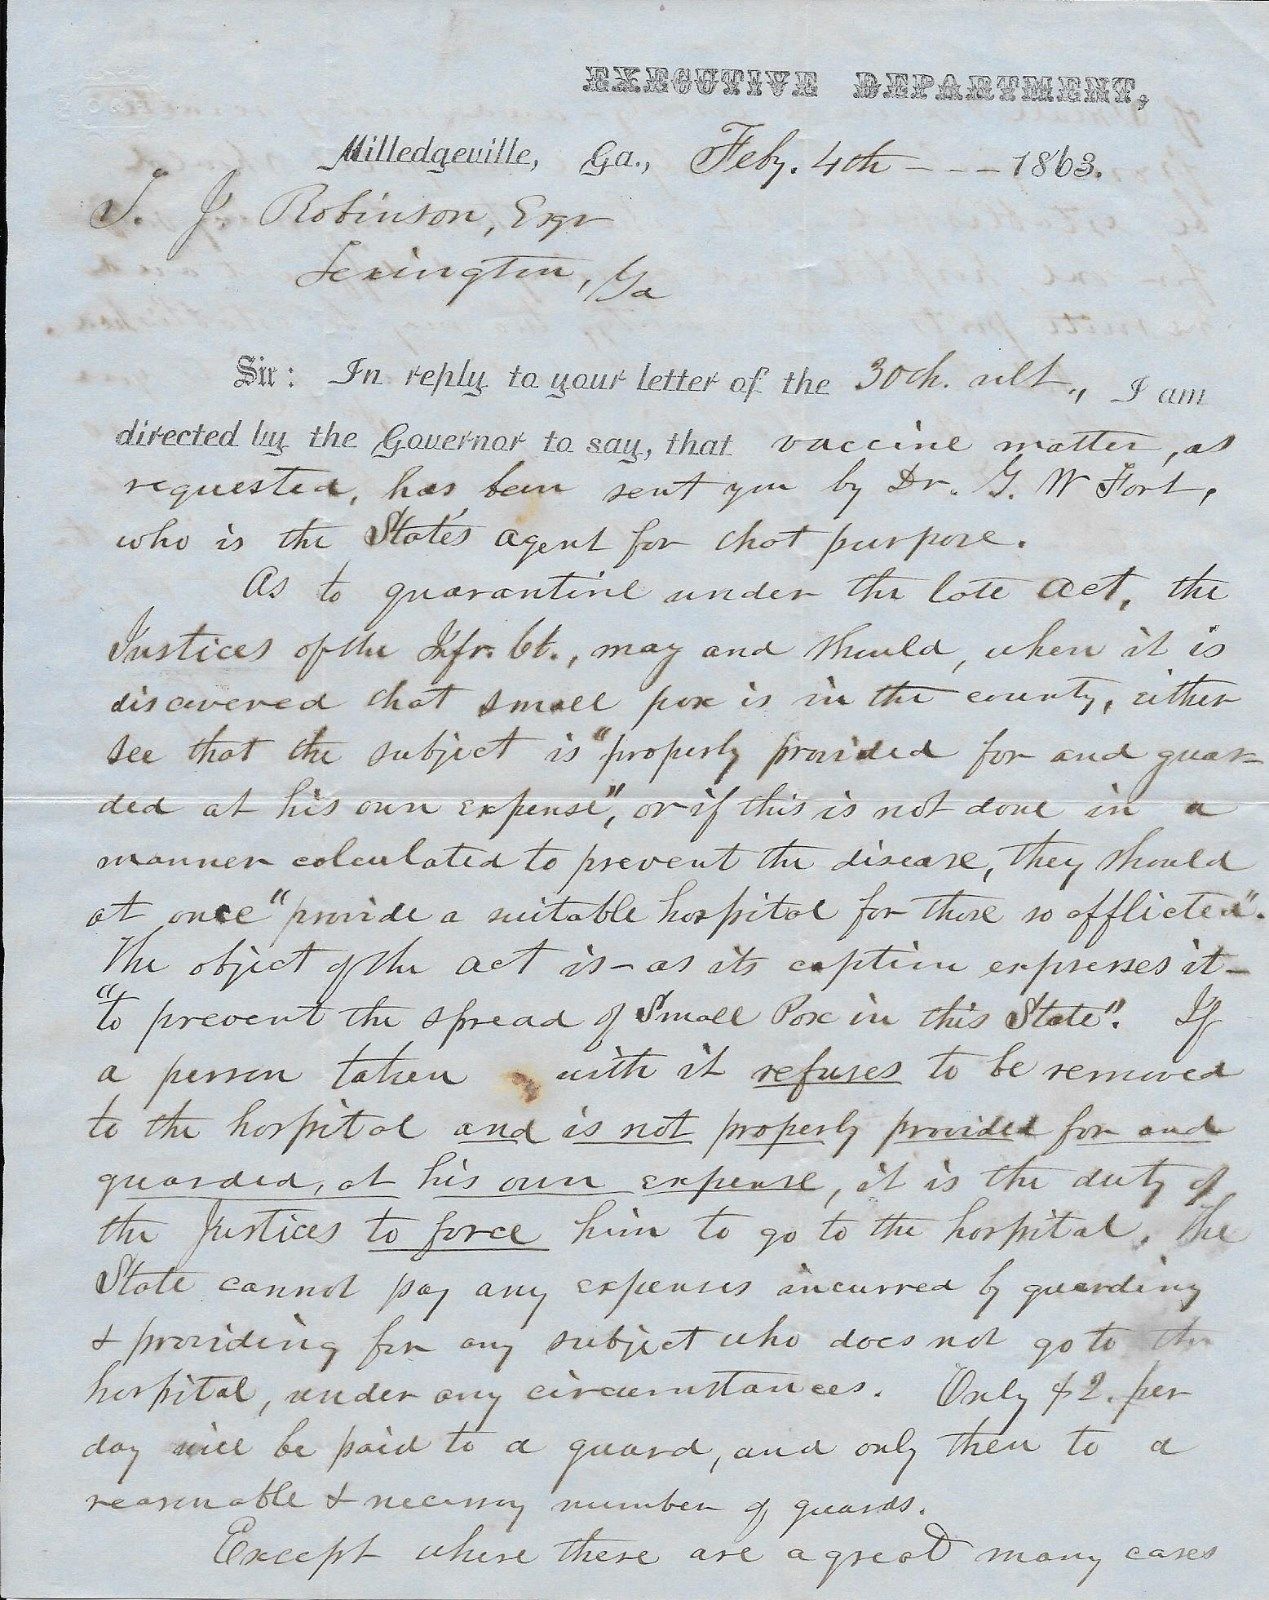 EXECUTIVE DEPARTMENT,
Milledgeville, Ga., Feby. 4th - - - 1863.
T. J. Robinson, Esqr
Lexington, Ga
Sir: In reply to your letter of the 30th. ult., I am
directed by the Governor to say, that vaccine matter, as
requested, has been sent you by Dr. G. W Fort,
who is the State's agent for that purpose.
As to quarantine under the late act, the
Justices of the Infr. Ct., may and should, when it is
discovered that small pox is in the county, either
see that the subject is "properly provided for and guar-
ded at his own expense", or if this is not done in a
manner calculated to prevent the disease, they should
at once "provide a suitable hospital for those so afflicted".
The object of the act is - as its caption expresses it -
"to prevent the spread of Small Pox in this State". If
a person taken with it refuses to be removed
to the hospital and is not properly provided for and
guarded, at his own expense, it is the duty of
the Justices to force him to go to the hospital. The
State cannot pay any expenses incurred by guarding
& providing for any subject who does not go to the
hospital, under any circumstances. Only $2. per
day will be paid to a guard, and only then to a
reasonable & necessary number of guards.
Except where there are a great many cases